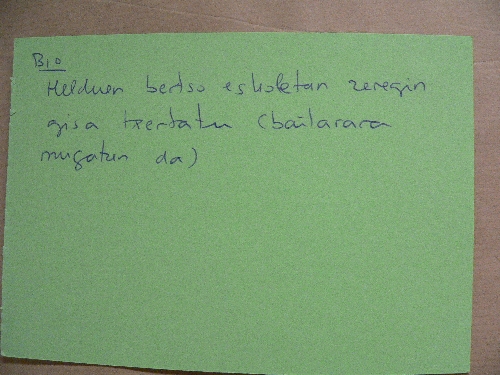 B10
Helduen bertso eskoletan zeregin
gisa txertatu (bailarara
mugatun da)